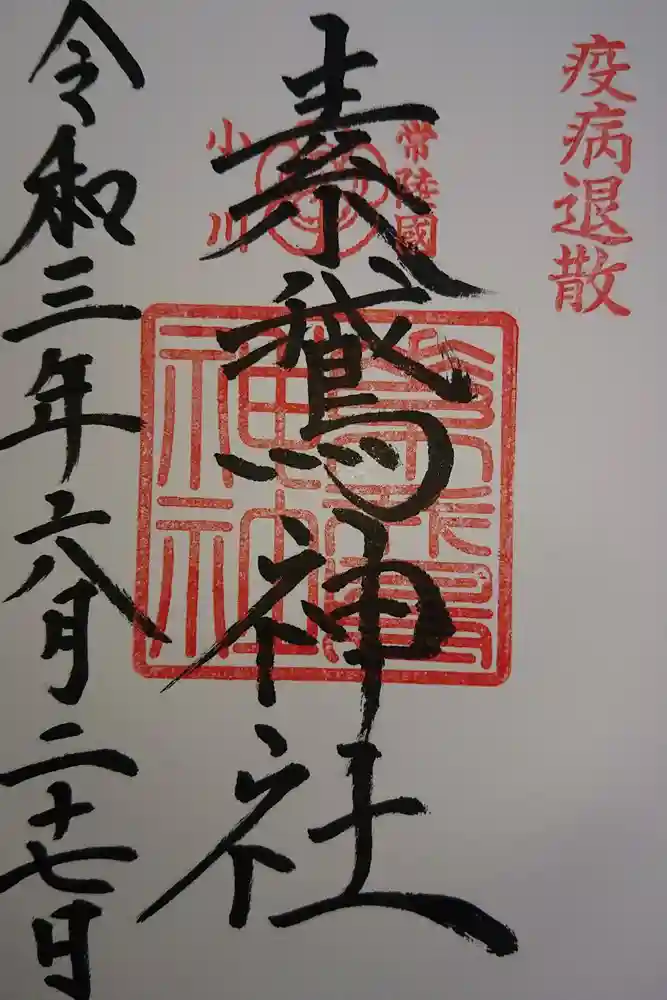 疫病退散
常陸國
小川
素鵞神社
令和三年六月二十七日
素鵞
神社